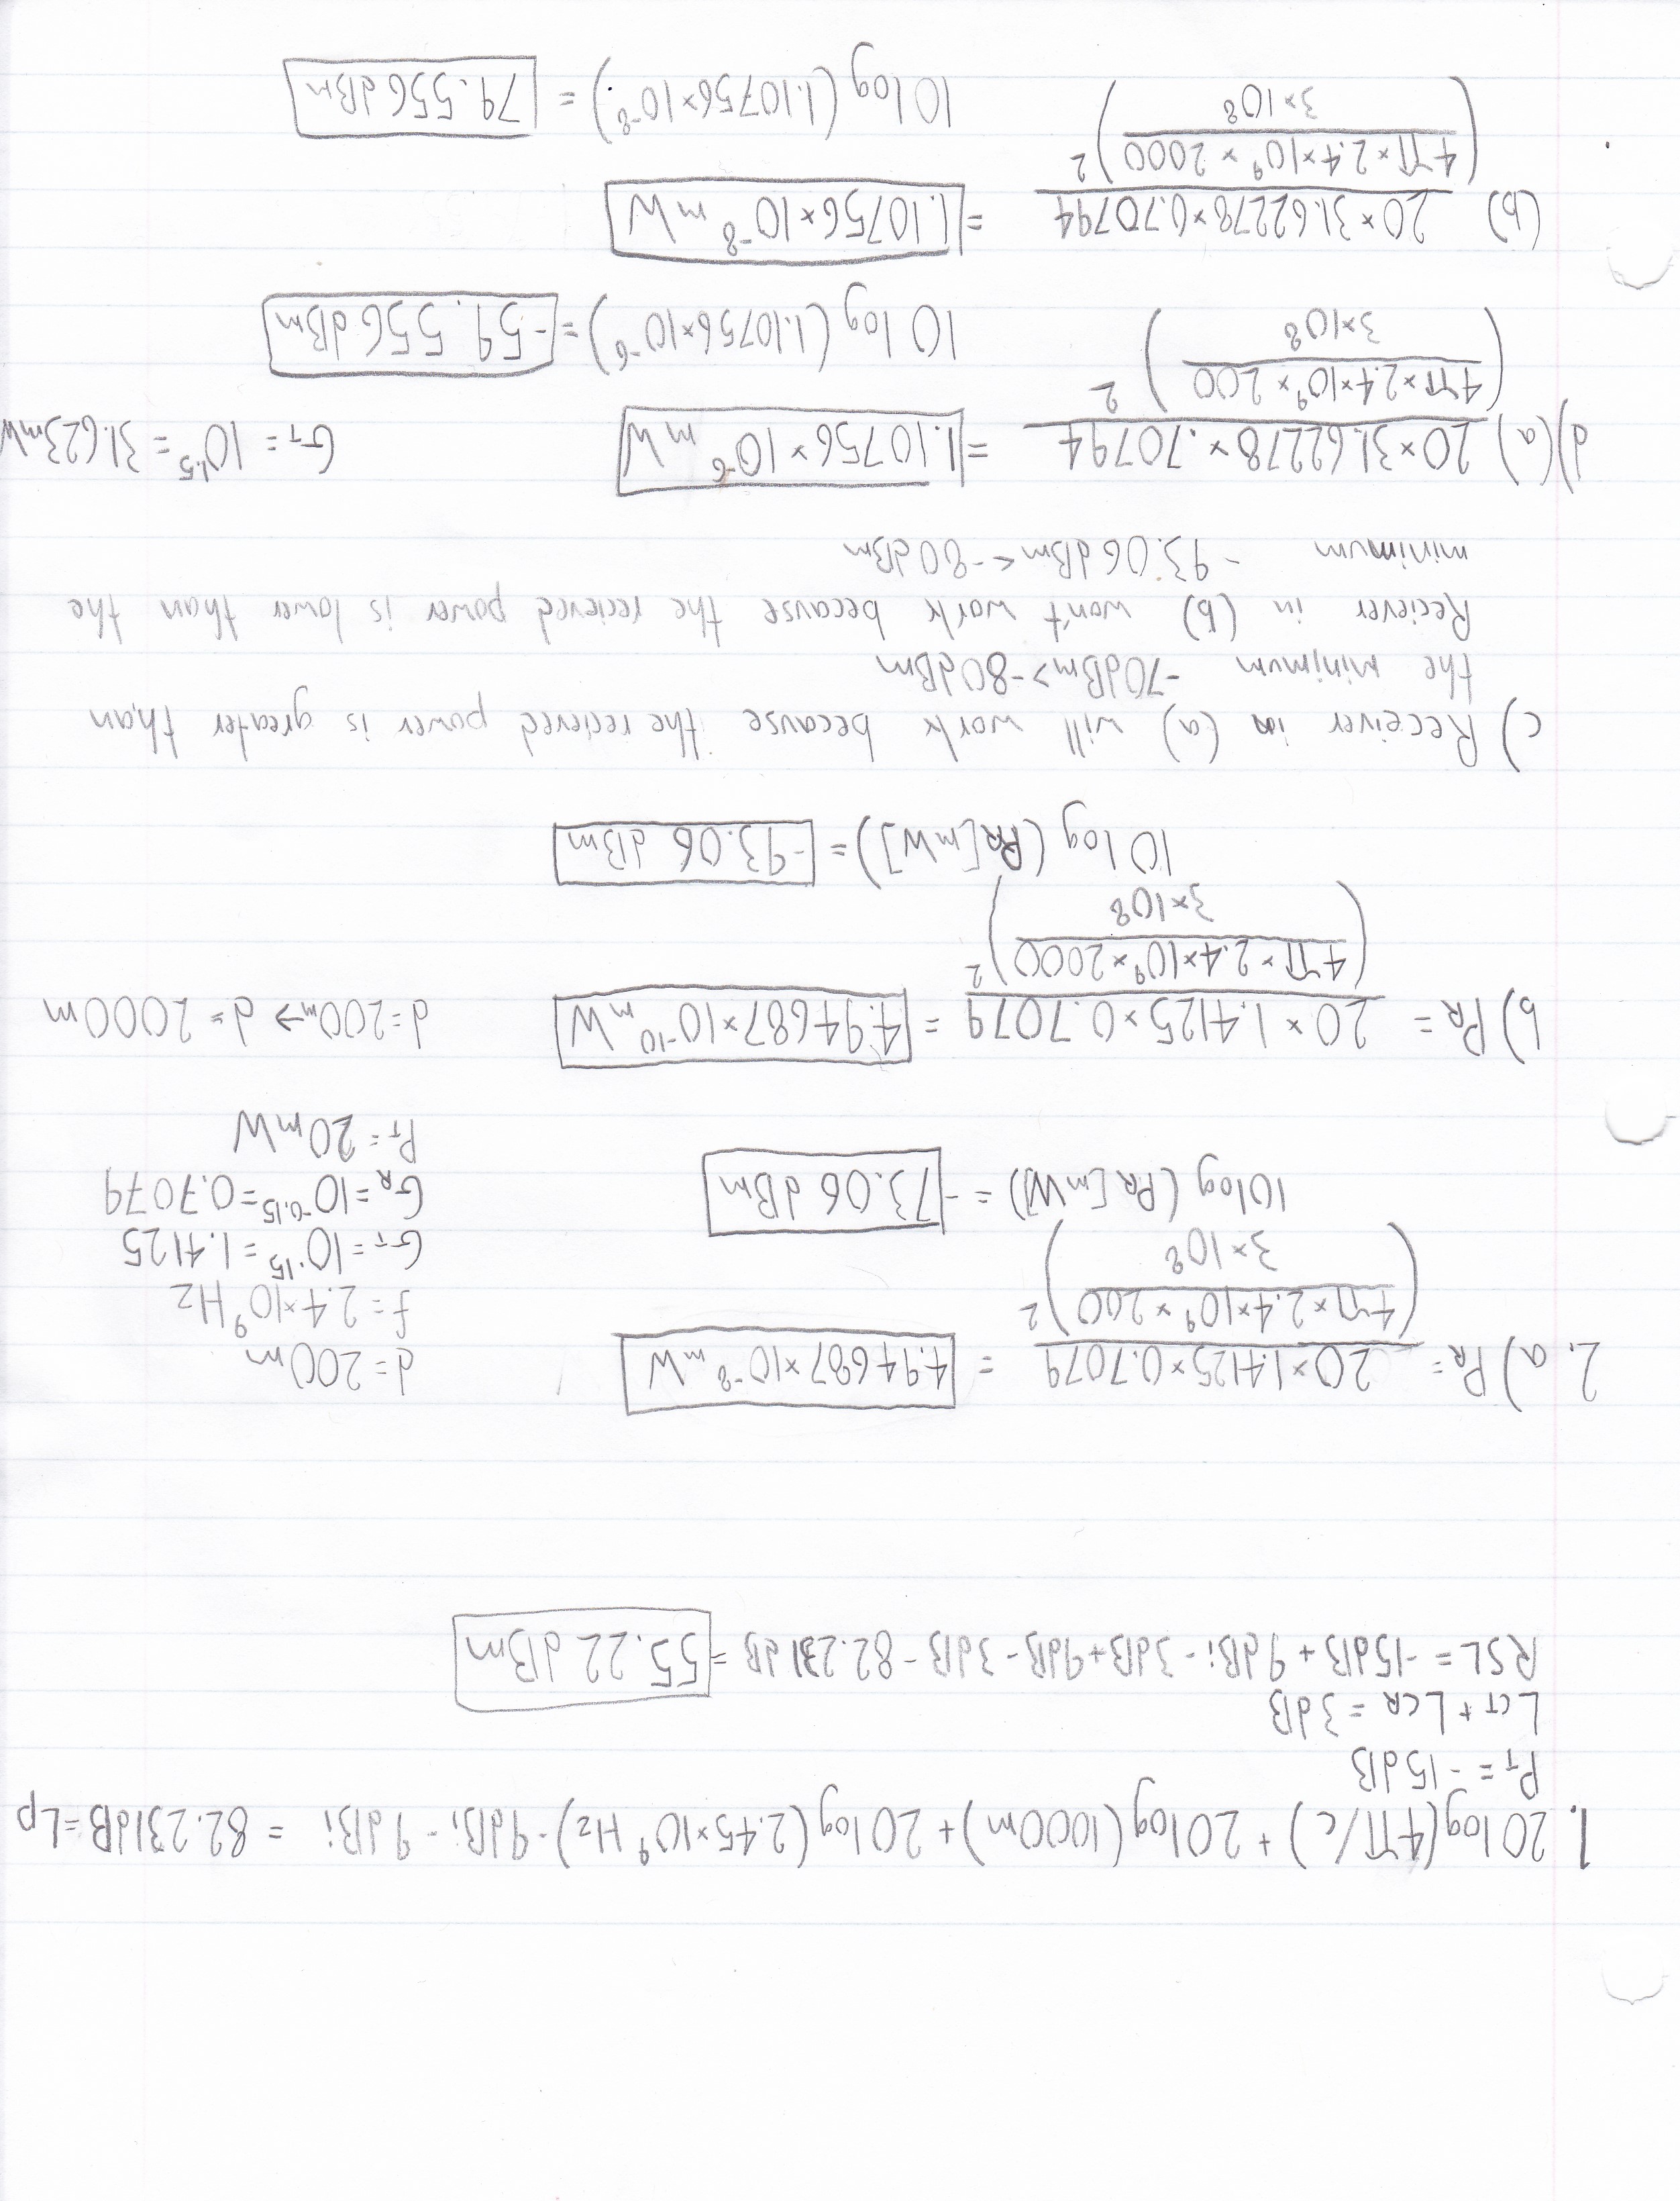 1. 20 log(4π/c) + 20 log(1000m) + 20 log(2.45×10⁹ Hz) - 9dBi - 9 dBi = 82.231dB = Lp
P_T = -15dB
L_CT + L_CR = 3dB
RSL = -15dB + 9dBi - 3dB + 9dB - 3dB - 82.231 dB = 55.22 dBm
2. a) P_R = 20 × 1.4125 × 0.7079 / (4π × 2.4×10⁹ × 200 / 3×10⁸)² = 4.94687 × 10⁻⁸ mW
d = 200m
f = 2.4×10⁹ Hz
G_T = 10^.15 = 1.4125
G_R = 10^-0.15 = 0.7079
P_T = 20mW
10 log (P_R [mW]) = -73.06 dBm
b) P_R = 20 × 1.4125 × 0.7079 / (4π × 2.4×10⁹ × 2000 / 3×10⁸)² = 4.94687×10⁻¹⁰ mW
d = 200m → d = 2000m
10 log (P_R [mW]) = -93.06 dBm
c) Receiver in (a) will work because the recieved power is greater than
the minimum -70dBm > -80dBm
Reciever in (b) won't work because the recieved power is lower than the
minimum -93.06 dBm < -80dBm
d) (a) 20 × 31.62278 × .70794 / (4π × 2.4×10⁹ × 200 / 3×10⁸)² = 1.10756 × 10⁻⁶ mW
G_T = 10^1.5 = 31.623mW
10 log (1.10756×10⁻⁶) = -59.556 dBm
(b) 20 × 31.62278 × 0.70794 / (4π × 2.4×10⁹ × 2000 / 3×10⁸)² = 1.10756×10⁻⁸ mW
10 log (1.10756×10⁻⁸) = 79.556 dBm